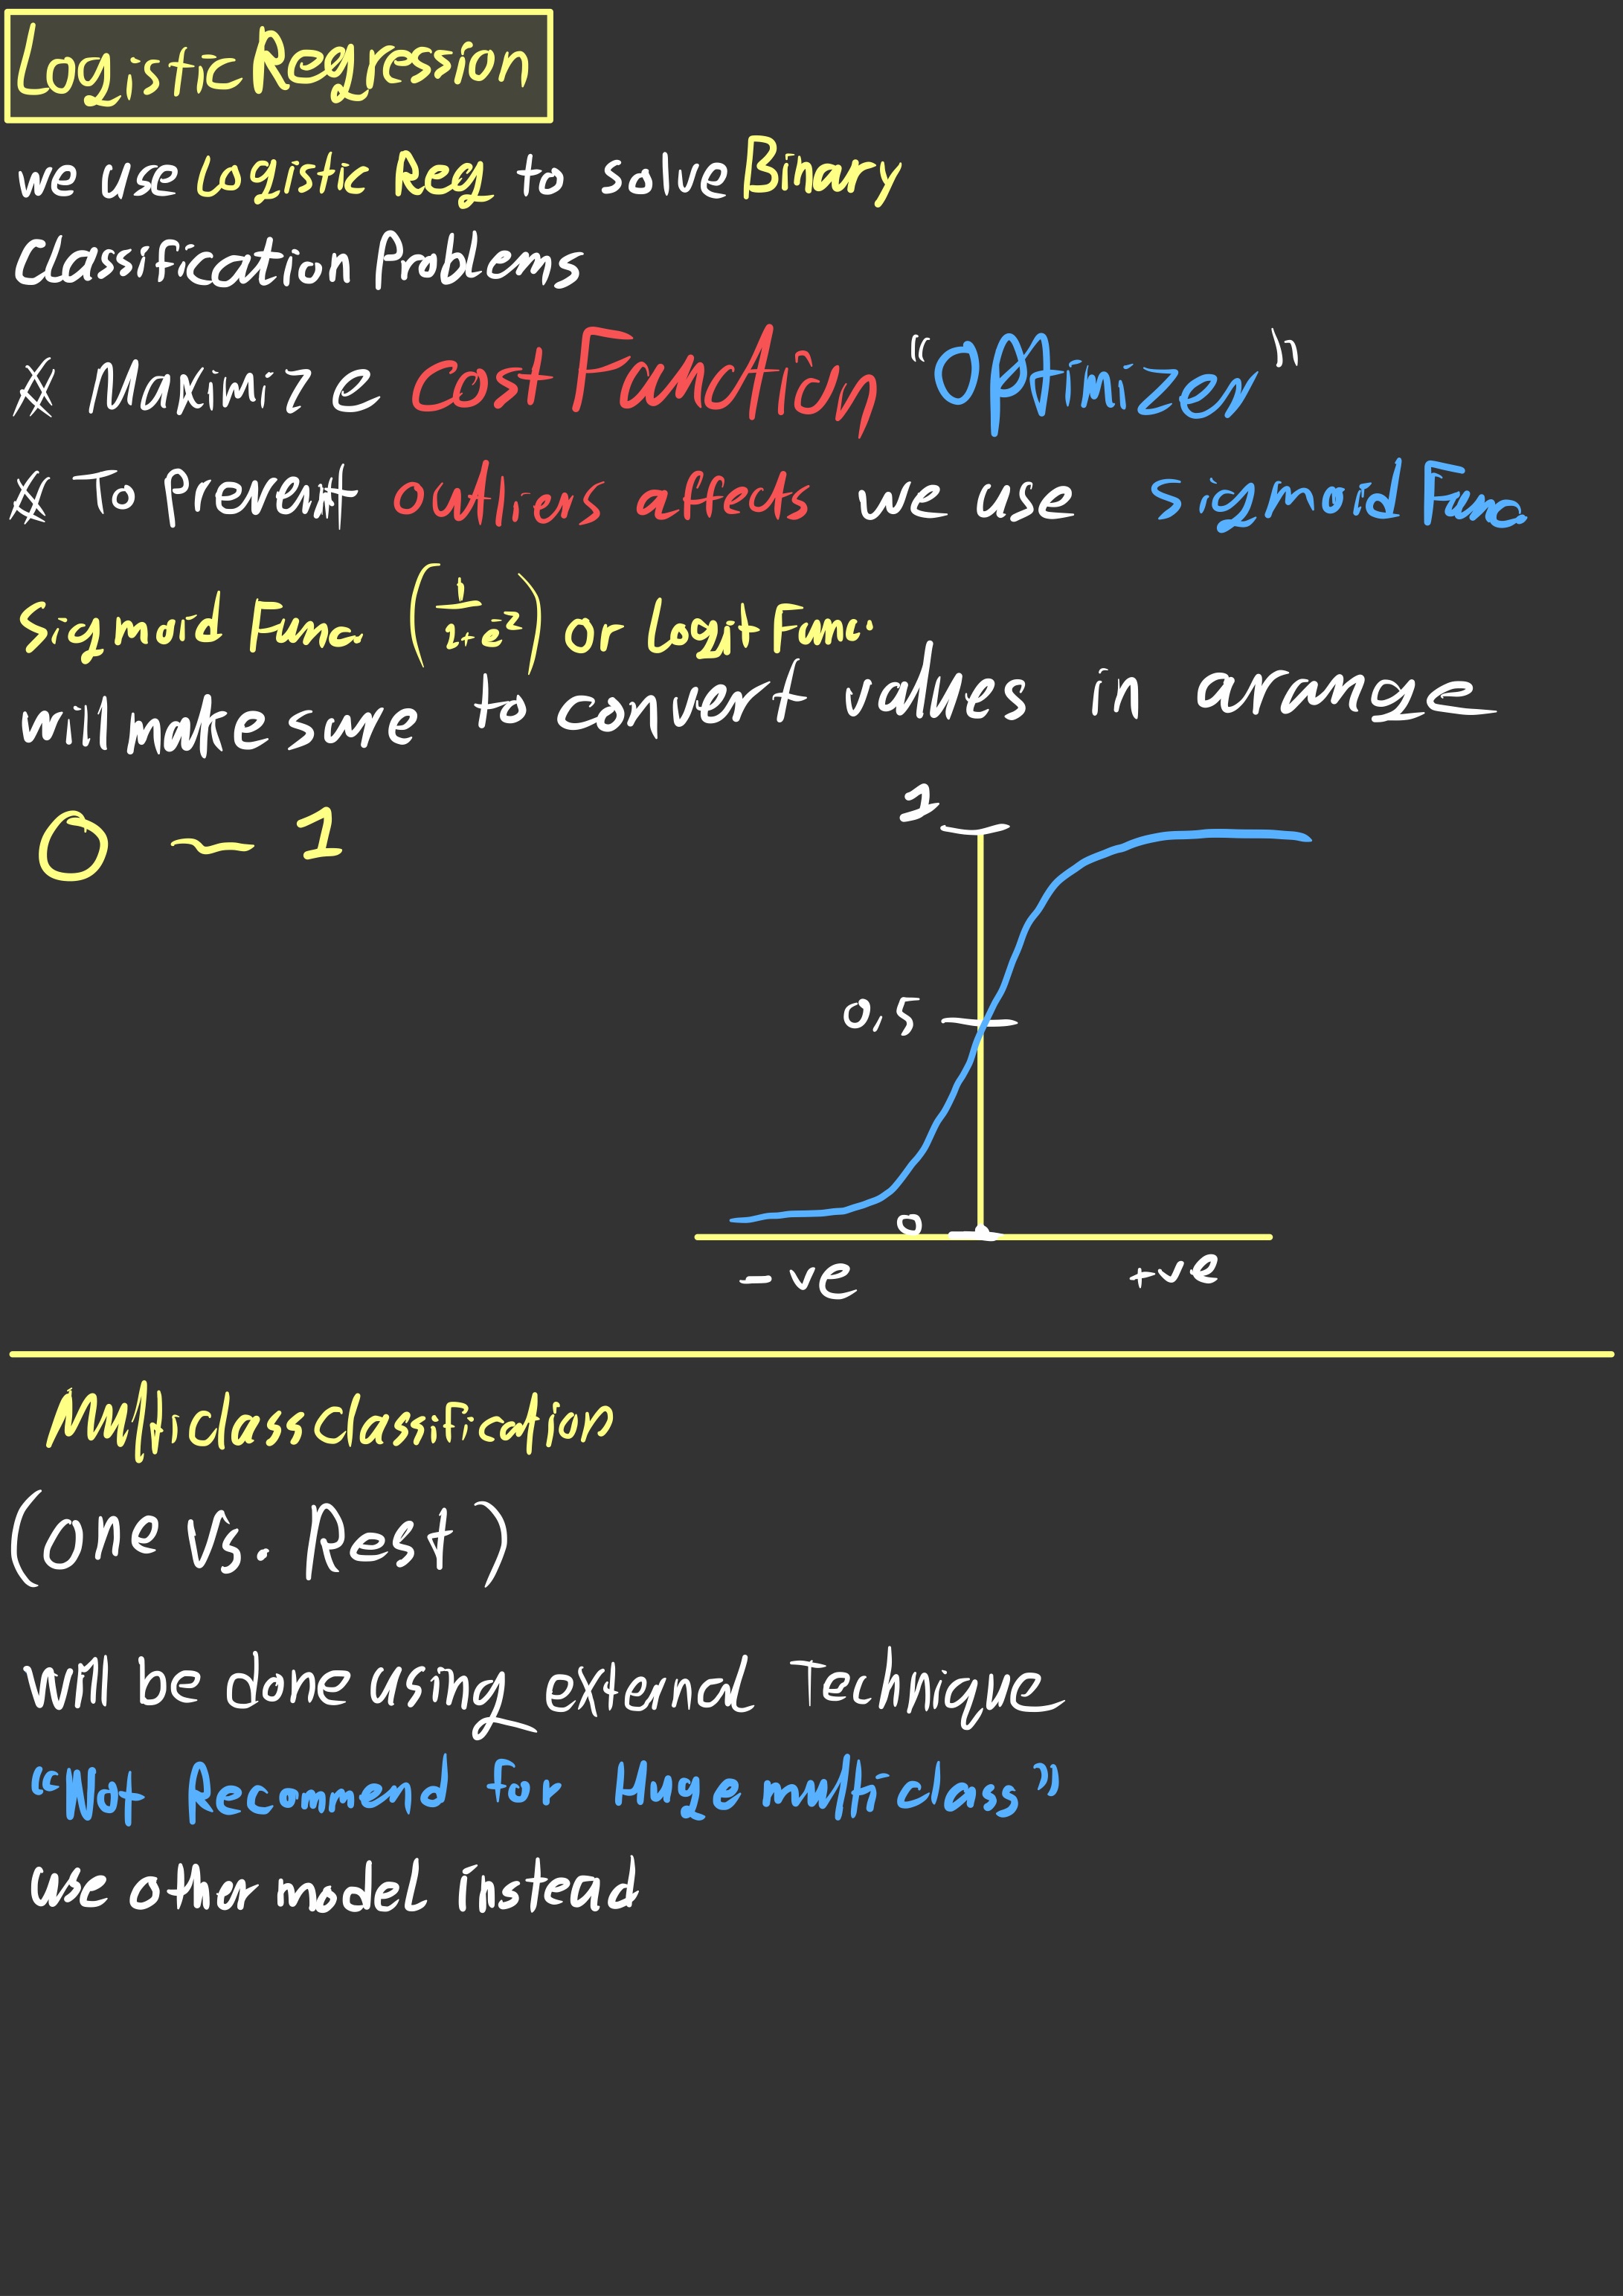 Logistic Regression
we use Logistic Reg to solve Binary
Classification Problems
* Maximize cost Function "Optimizer"
* To Prevent outliers affects we use sigmoid Func
Sigmoid Func (1/1+e^-z) or Logit func.
will make sure to convert values in a range
0 ~ 1
1
0,5
0
-ve +ve
Multiclass Classification
(one vs. Rest)
will be done using external Technique
"Not Recommend for Huge multi-class"
use other model instead